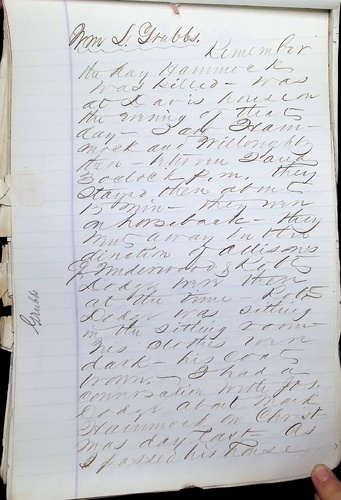 Wm L. Grubbs.
Remember
the day Hammock
was killed - was
at Davis house on
the evning of that
day - I saw Ham-
mock and Willoughby
then - between 2 and
3 oclock P.m. they
stayed then about
15 min - they were
on horseback - they
went away in the
direction of Addisons
J. Underwood & Robt
Dodger were there
at the time - Robt
Dodger was sitting
in the sitting room -
his clothes were
dark - his coat
brown. - I had a
conversation with Jos.
Dodger about Mark
Hammock on Christ-
mas day last - As
I passed his house
Grubbs